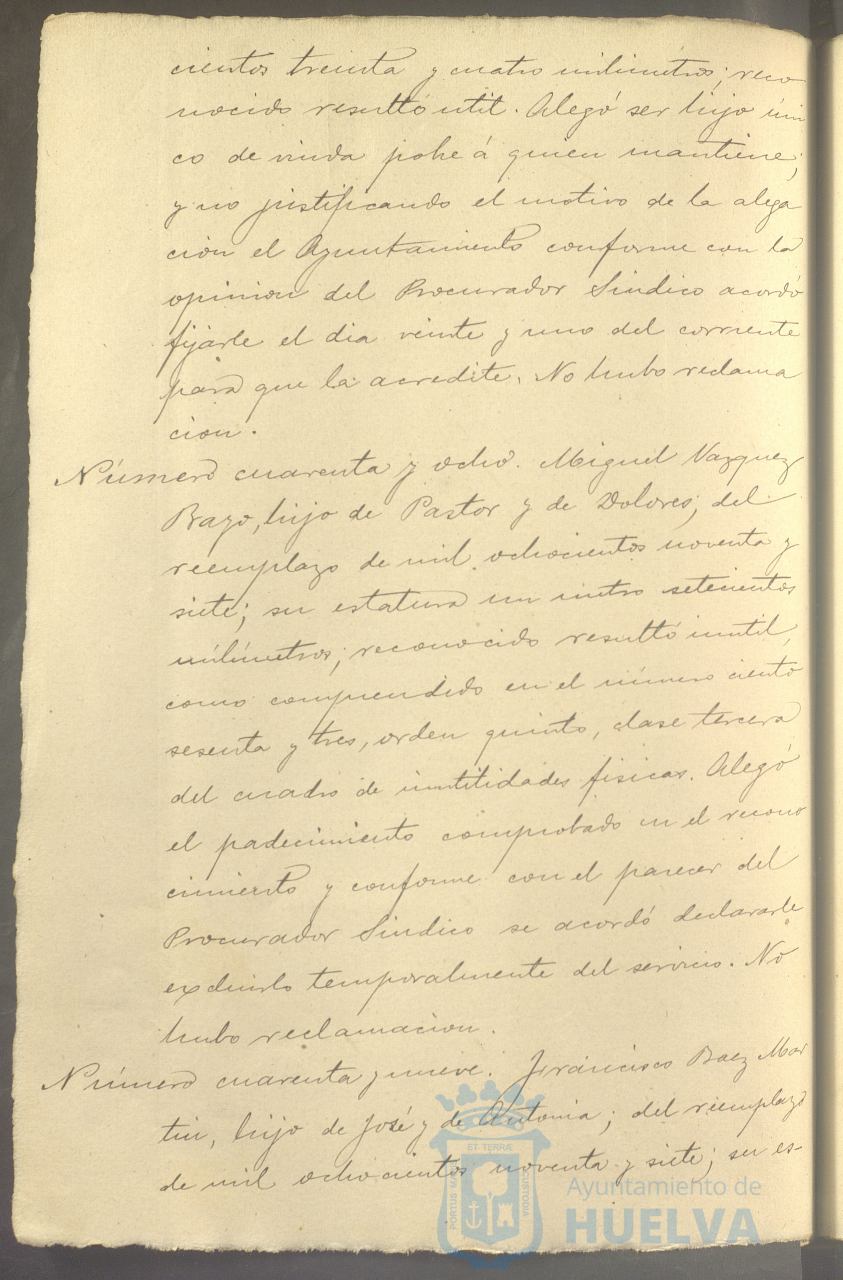 cientos treinta y cuatro milimetros; reco-
nocido resultó util. Alegó ser hijo úni
co de viuda pobre á quien mantiene;
y no justificando el motivo de la alega
ción el Ayuntamiento conforme con la
opinion del Procurador Sindico acordó
fijarle el dia veinte y uno del corriente
para que la acredite. No hubo reclama
cion.
Número cuarenta y ocho. Miguel Vazquez
Brayo, hijo de Pastor y de Dolores; del
reemplazo de mil ochocientos noventa y
siete; su estatura un metro setecientos
milímetros; reconocido resultó inutil,
como comprendido en el número ciento
sesenta y tres, orden quinto, clase tercera
del cuadro de inutilidades fisicas. Alegó
el padecimiento comprobado en el recono
cimiento y conforme con el parecer del
Procurador Sindico se acordó declararle
excluirlo temporalmente del servicio. No
hubo reclamacion.
Número cuarenta y nueve. Francisco Baez Mar
tin, hijo de José y de Antonia; del reemplazo
de mil ochocientos noventa y siete; su es-
ET TERRÆ
PORTUS MA
CUSTODIA
Ayuntamiento de
HUELVA